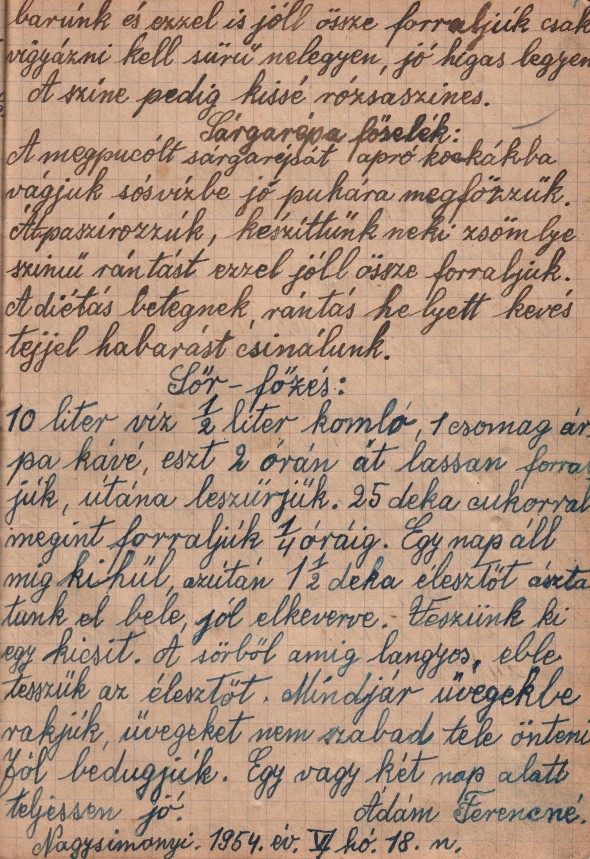 barúnk és ezzel is jóll össze forraljúk csak
vigyázni kell sűrű nelegyen, jó hígas legyen
A színe pedig kissé rózsaszínes.
Sárgarépa főselék:
A megpucólt sárgarépát apró kockákba
vágjuk sósvízbe jó puhára megfőzzük.
Átpaszírozzúk, készíttünk neki zsömlye
színű rántást ezzel jóll össze forraljuk.
A diétás betegnek, rántás helyett kevés
tejjel habarást csinálunk.
Sőr-főzés:
10 liter víz 1/2 liter komló, 1 csomag ár-
pa kávé, eszt 2 órán át lassan forral
júk, útána leszűrjük. 25 deka cukorral
megint forraljúk 1/4 óráig. Egy nap áll
mig kihűl, azútán 1 1/2 deka élesztőt ászta
tunk el bele, jól elkeverve. Veszünk ki
egy kicsit. A sörből amig langyos, ebbe
tesszük az élesztőt. Mindjár üvegekbe
rakjúk, üvegeket nem szabad tele önteni
Jól bedugjúk. Egy vagy két nap alatt
teljessen jó. Ádám Ferencné.
Nagysimonyi. 1954. év. VI hó. 18. n.